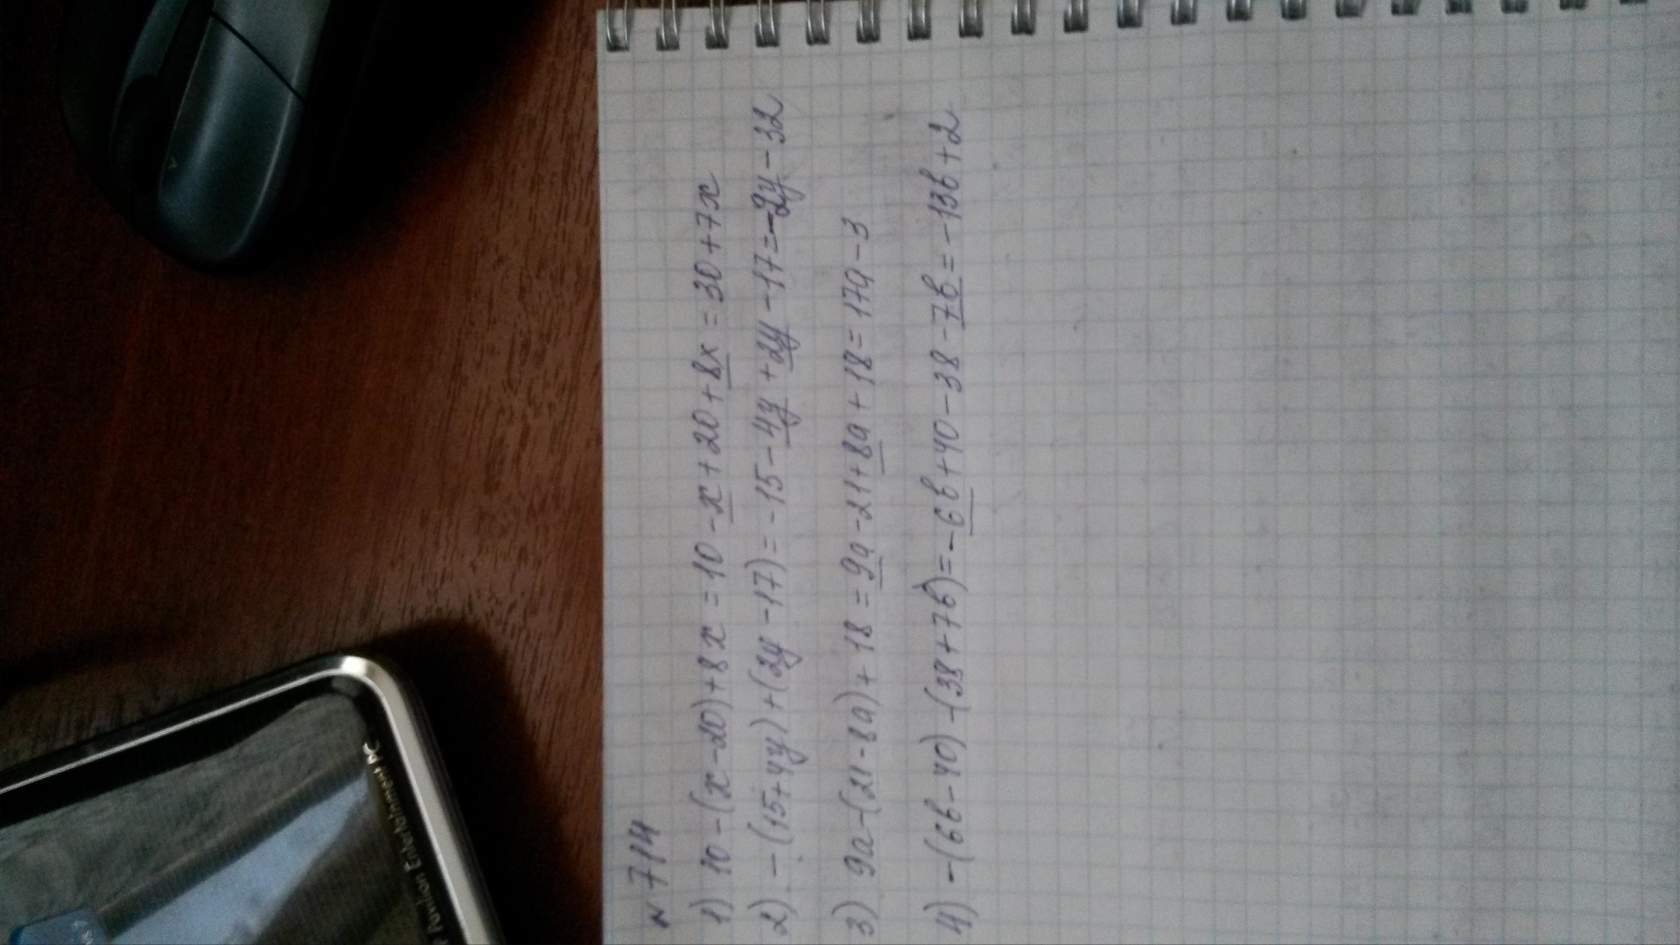 N 714
1) 10-(x-20)+8x=10-x+20+8x=30+7x
2) -(15+4y)+(2y-17)=-15-4y+2y-17=-2y-32
3) 9a-(21-8a)+18=9a-21+8a+18=17a-3
4) -(6b-40)-(38+7b)=-6b+40-38-7b=-13b+2
Pavilion Entertainment PC